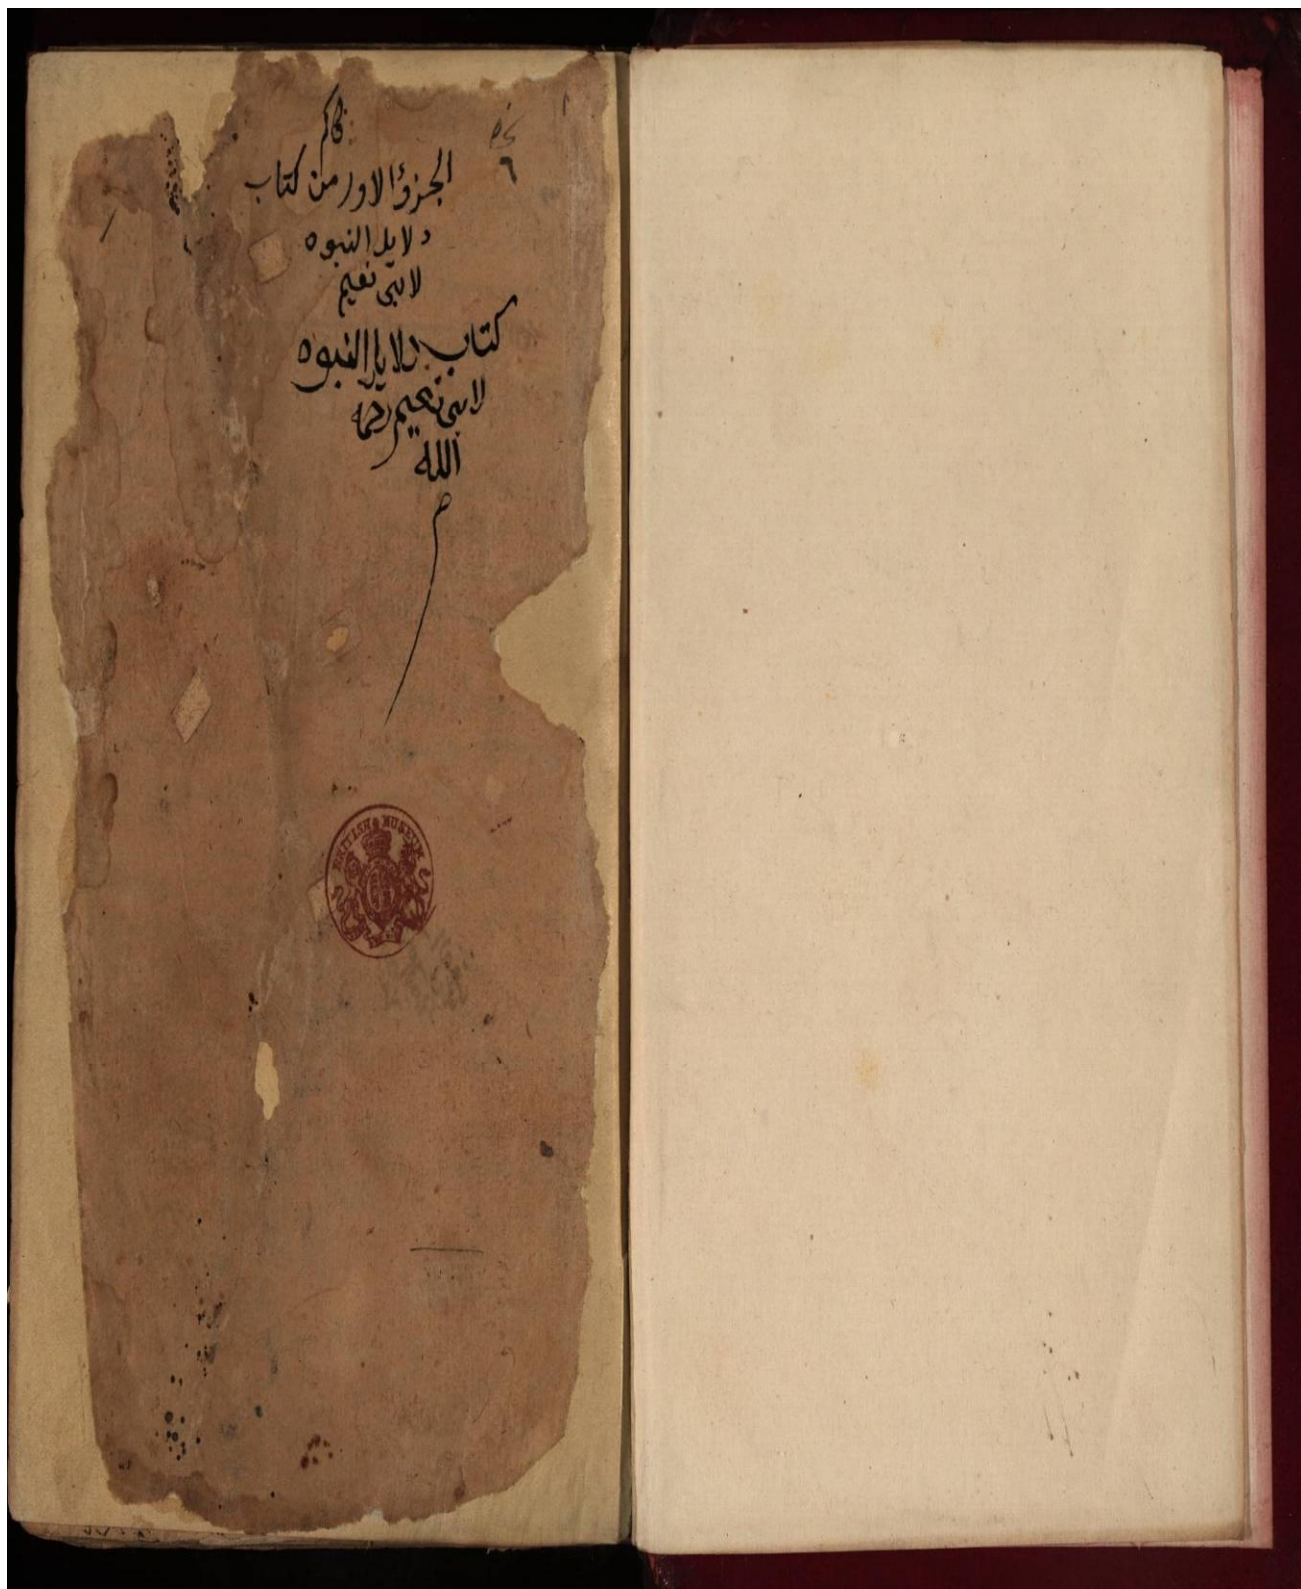 الجزؤ الاول من كتاب
٦
دلايل النبوه
لابي نعيم
كتاب دلايل النبوه
لابي نعيم رحمه
الله
BRITISH MUSEUM